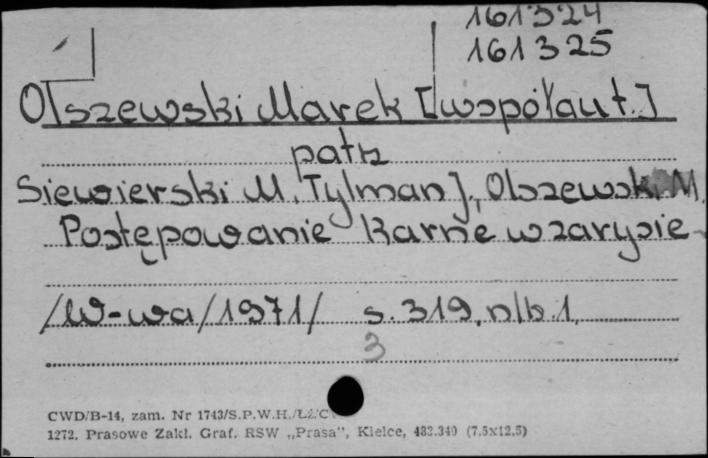 161324
161325
Olszewski Marek [współaut.]
patrz
Siewierski M. Tylman J., Olszewski M.
Postępowanie karne w zarysie
/W-wa/1971/ s. 319, nlb. 1,
3
CWD/B-14, zam. Nr 1743/S.P.W.H./
1272. Prasowe Zakł. Graf. RSW „Prasa”, Kielce, 482.340 (7.5x12.5)